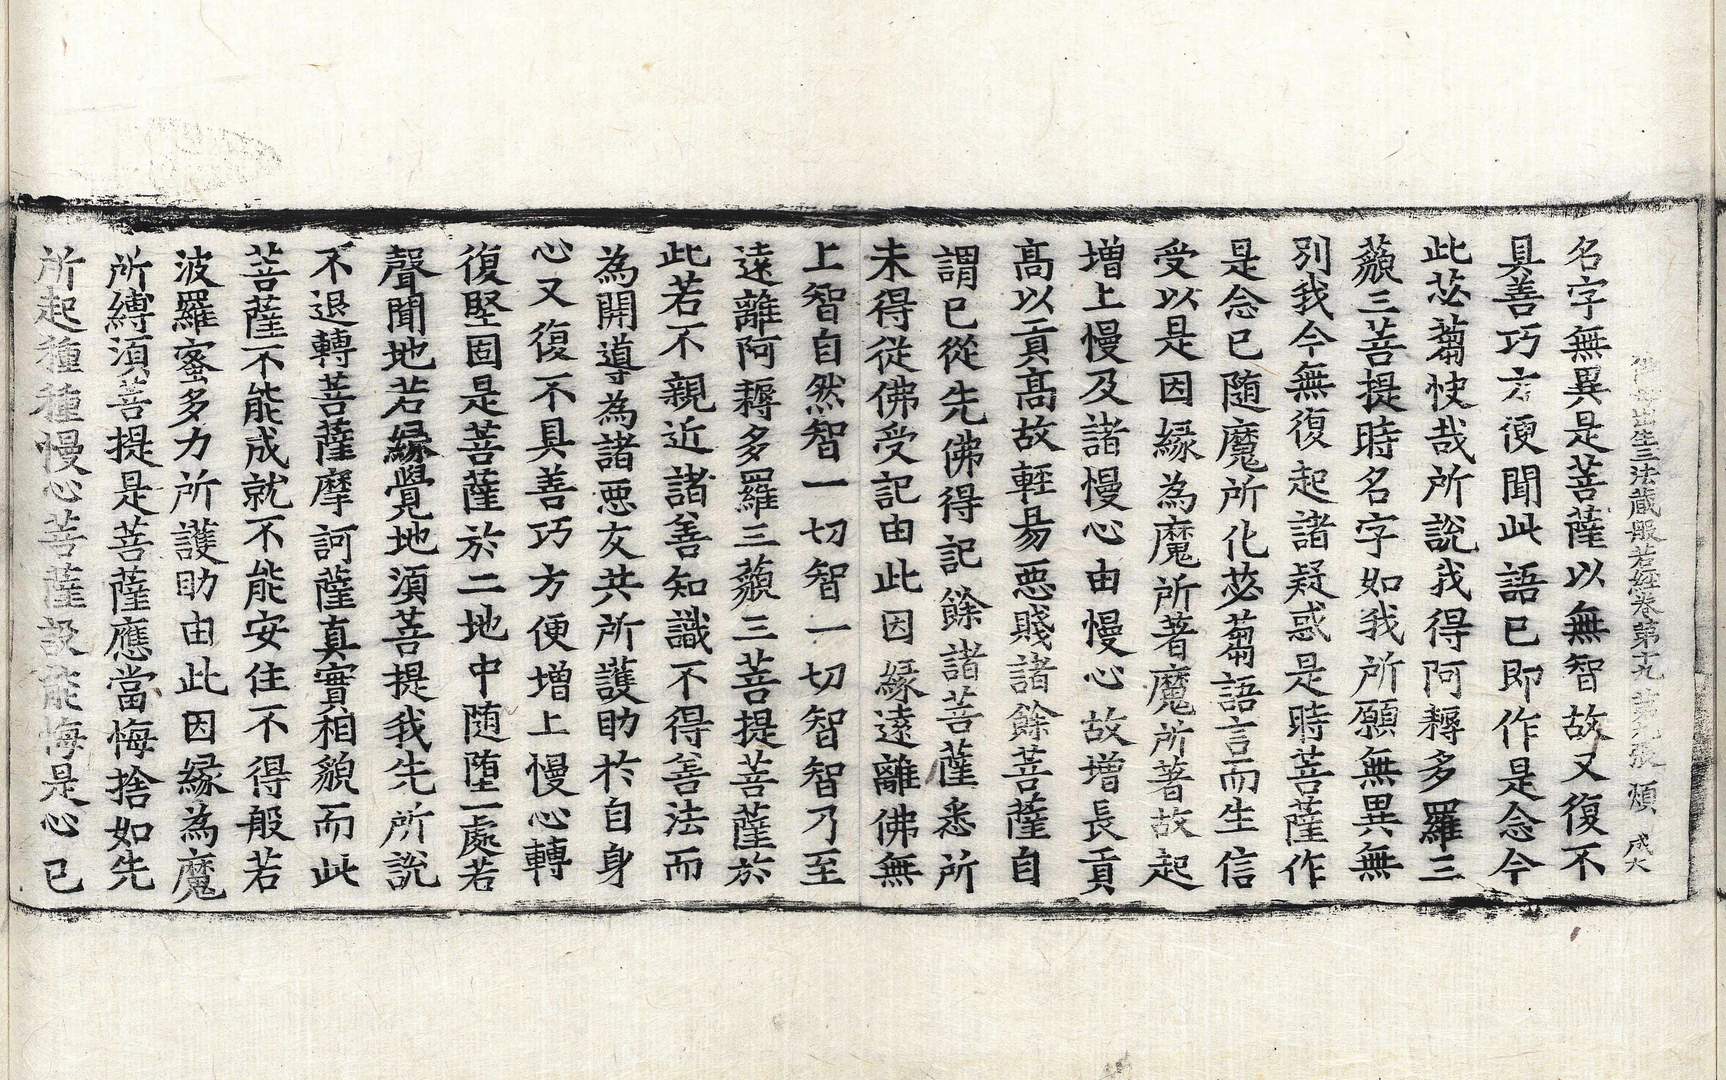 佛母出生三法藏般若經卷第十九 第九張 煩 成大
名字無異是菩薩以無智故又復不
具善巧方便聞此語已即作是念今
此苾蒭快哉所說我得阿耨多羅三
藐三菩提時名字如我所願無異無
別我今無復起諸疑惑是時菩薩作
是念已随魔所化苾蒭語言而生信
受以是因緣為魔所著魔所著故起
增上慢及諸慢心由慢心故增長貢
高以貢高故輕易惡賤諸餘菩薩自
謂已從先佛得記餘諸菩薩悉所
未得從佛受記由此因緣遠離佛無
上智自然智一切智一切智智乃至
遠離阿耨多羅三藐三菩提菩薩於
此若不親近諸善知識不得善法而
為開導為諸惡友共所護助於自身
心又復不具善巧方便增上慢心轉
復堅固是菩薩於二地中随墮一處若
聲聞地若緣覺地須菩提我先所說
不退轉菩薩摩訶薩真實相貌而此
菩薩不能成就不能安住不得般若
波羅蜜多力所護助由此因緣為魔
所縛須菩提是菩薩應當悔捨如先
所起種種慢心菩薩設能悔是心已